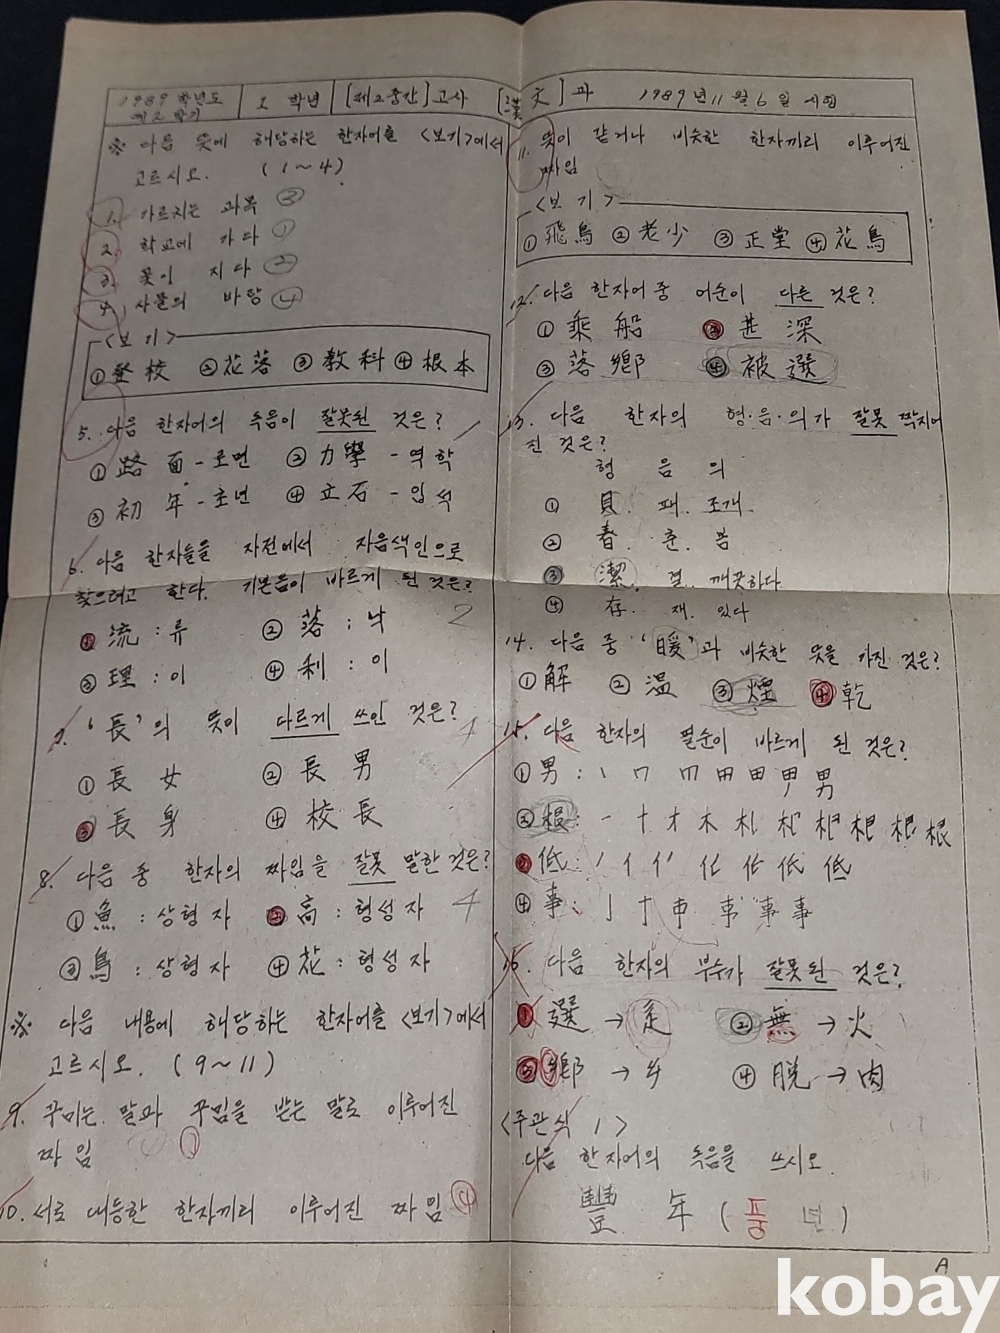 1989 학년도
제 2 학기
1 학년
[제2중간] 고사
[漢文] 과
1989년 11월 6일 시행
※ 다음 뜻에 해당하는 한자어를 <보기>에서
고르시오. (1~4)
1. 가르치는 과목 ③
2. 학교에 가다 ①
3. 꽃이 지다 ②
4. 사물의 바탕 ④
<보기>
① 登校 ② 花落 ③ 敎科 ④ 根本
5. 다음 한자어의 독음이 잘못된 것은?
① 路面 - 로면 ② 力學 - 역학
③ 初年 - 초년 ④ 立石 - 입석
6. 다음 한자들을 자전에서 자음색인으로
찾으려고 한다. 기본음이 바르게 된 것은?
① 流 : 류 ② 落 : 낙 2
③ 理 : 이 ④ 利 : 이
7. '長'의 뜻이 다르게 쓰인 것은? 4
① 長女 ② 長男
③ 長身 ④ 校長
8. 다음 중 한자의 짜임을 잘못 말한 것은?
① 魚 : 상형자 ② 高 : 형성자 4
③ 鳥 : 상형자 ④ 花 : 형성자
※ 다음 내용에 해당하는 한자어를 <보기>에서
고르시오. (9~11)
9. 꾸미는 말과 꾸밈을 받는 말로 이루어진
짜임 ①
10. 서로 대등한 한자끼리 이루어진 짜임 ④
11. 뜻이 같거나 비슷한 한자끼리 이루어진
짜임
<보기>
① 飛鳥 ② 老少 ③ 正堂 ④ 花鳥
12. 다음 한자어 중 어순이 다른 것은?
① 乘船 ② 甚深
③ 落鄕 ④ 被選
13. 다음 한자의 형·음·의가 잘못 짝지어
진 것은?
형 음 의
① 貝. 패. 조개.
② 春. 춘. 봄
③ 潔. 결. 깨끗하다.
④ 存. 재. 있다
14. 다음 중 '暖'과 비슷한 뜻을 가진 것은?
① 解 ② 溫 ③ 煙 ④ 乾
15. 다음 한자의 필순이 바르게 된 것은?
① 男 :
② 根 :
③ 低 :
④ 事 :
16. 다음 한자의 부수가 잘못된 것은?
① 選 → 辵 ② 無 → 火
③ 鄕 → 乡 ④ 脫 → 肉
<주관식 1>
다음 한자어의 독음을 쓰시오.
豐年 (풍년)
A
kobay